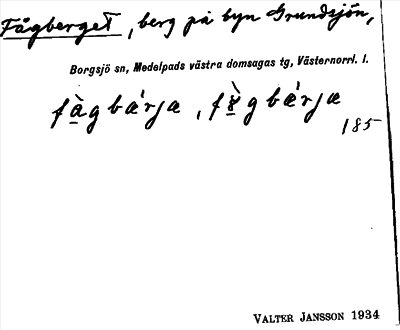 Fågberget, berg på byn Grundsjön,
Borgsjö sn, Medelpads västra domsagas tg, Västernorrl. l.
fàgbǽrjæ, f
185
VALTER JANSSON 1934